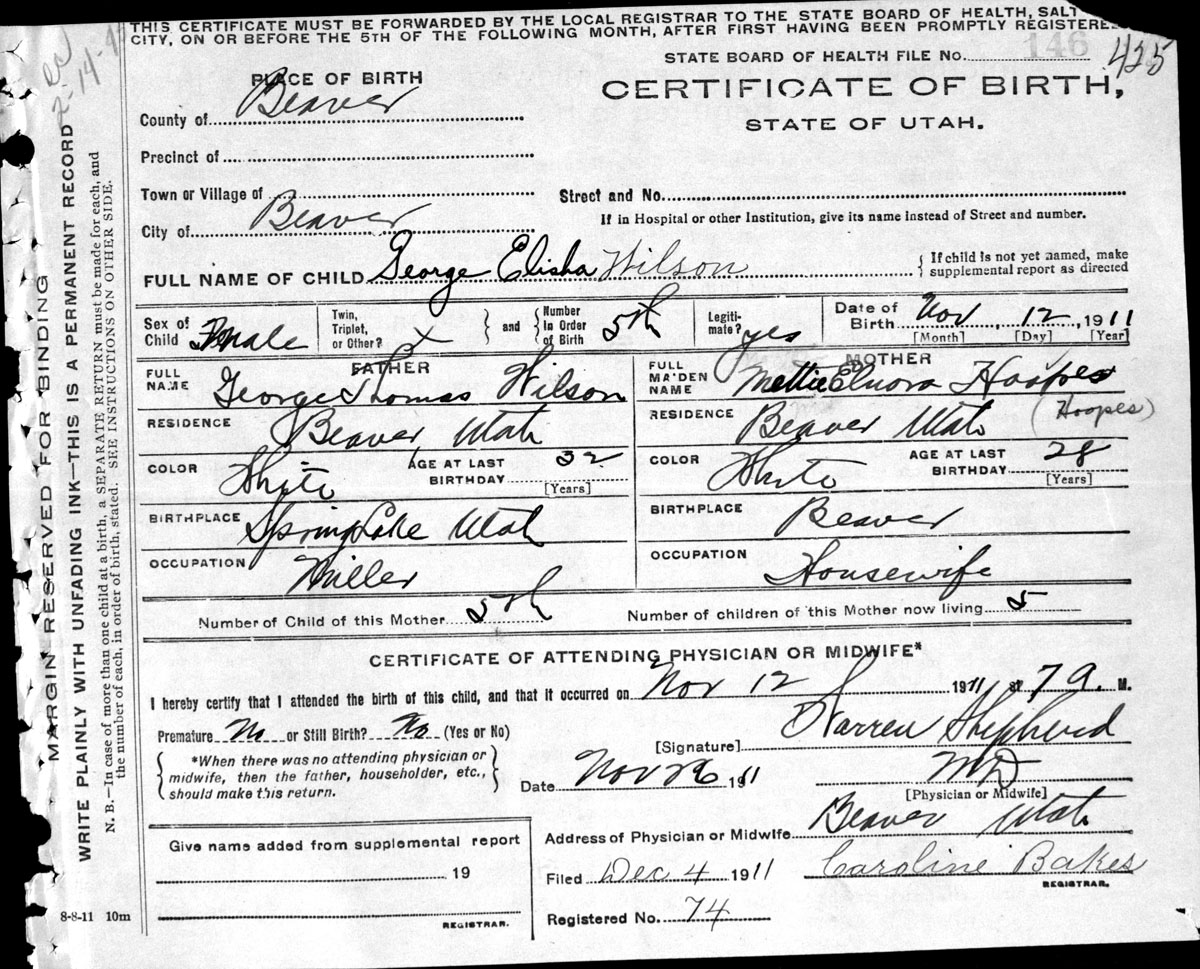 THIS CERTIFICATE MUST BE FORWARDED BY THE LOCAL REGISTRAR TO THE STATE BOARD OF HEALTH, SALT
CITY, ON OR BEFORE THE 5TH OF THE FOLLOWING MONTH, AFTER FIRST HAVING BEEN PROMPTLY REGISTERED
STATE BOARD OF HEALTH FILE No. 146 425
PLACE OF BIRTH
CERTIFICATE OF BIRTH,
STATE OF UTAH.
County of Beaver
Precinct of
Town or Village of
Street and No.
City of Beaver
If in Hospital or other Institution, give its name instead of Street and number.
FULL NAME OF CHILD George Elisha Wilson
{ If child is not yet named, make
supplemental report as directed
Sex of Child Male
Twin, Triplet, or Other? } and { Number In Order of Birth 5th
Legiti-mate? yes
Date of Birth Nov, 12, 1911
[Month] [Day] [Year]
FATHER
FULL NAME George Thomas Wilson
RESIDENCE Beaver Utah
COLOR White AGE AT LAST BIRTHDAY 32 [Years]
BIRTHPLACE Spring Lake Utah
OCCUPATION Miller
MOTHER
FULL MAIDEN NAME Mettie Hoopes
(Hoopes)
RESIDENCE Beaver Utah
COLOR White AGE AT LAST BIRTHDAY 28 [Years]
BIRTHPLACE Beaver
OCCUPATION Housewife
Number of Child of this Mother 5th Number of children of this Mother now living 5
CERTIFICATE OF ATTENDING PHYSICIAN OR MIDWIFE*
I hereby certify that I attended the birth of this child, and that it occurred on Nov 12 1911 at 7 a. M.
Premature No or Still Birth? No (Yes or No)
[Signature] Warren Shepherd
*When there was no attending physician or
midwife, then the father, householder, etc.,
should make this return.
Date Nov 26 1911
MD
[Physician or Midwife]
Address of Physician or Midwife Beaver Utah
Give name added from supplemental report
19
REGISTRAR.
Filed Dec 4 1911 Caroline Bakes
REGISTRAR.
Registered No. 74
8-8-11 10m
MARGIN RESERVED FOR BINDING
WRITE PLAINLY WITH UNFADING INK—THIS IS A PERMANENT RECORD
N. B.—In case of more than one child at a birth, a SEPARATE RETURN must be made for each, and
the number of each, in order of birth, stated. SEE INSTRUCTIONS ON OTHER SIDE.